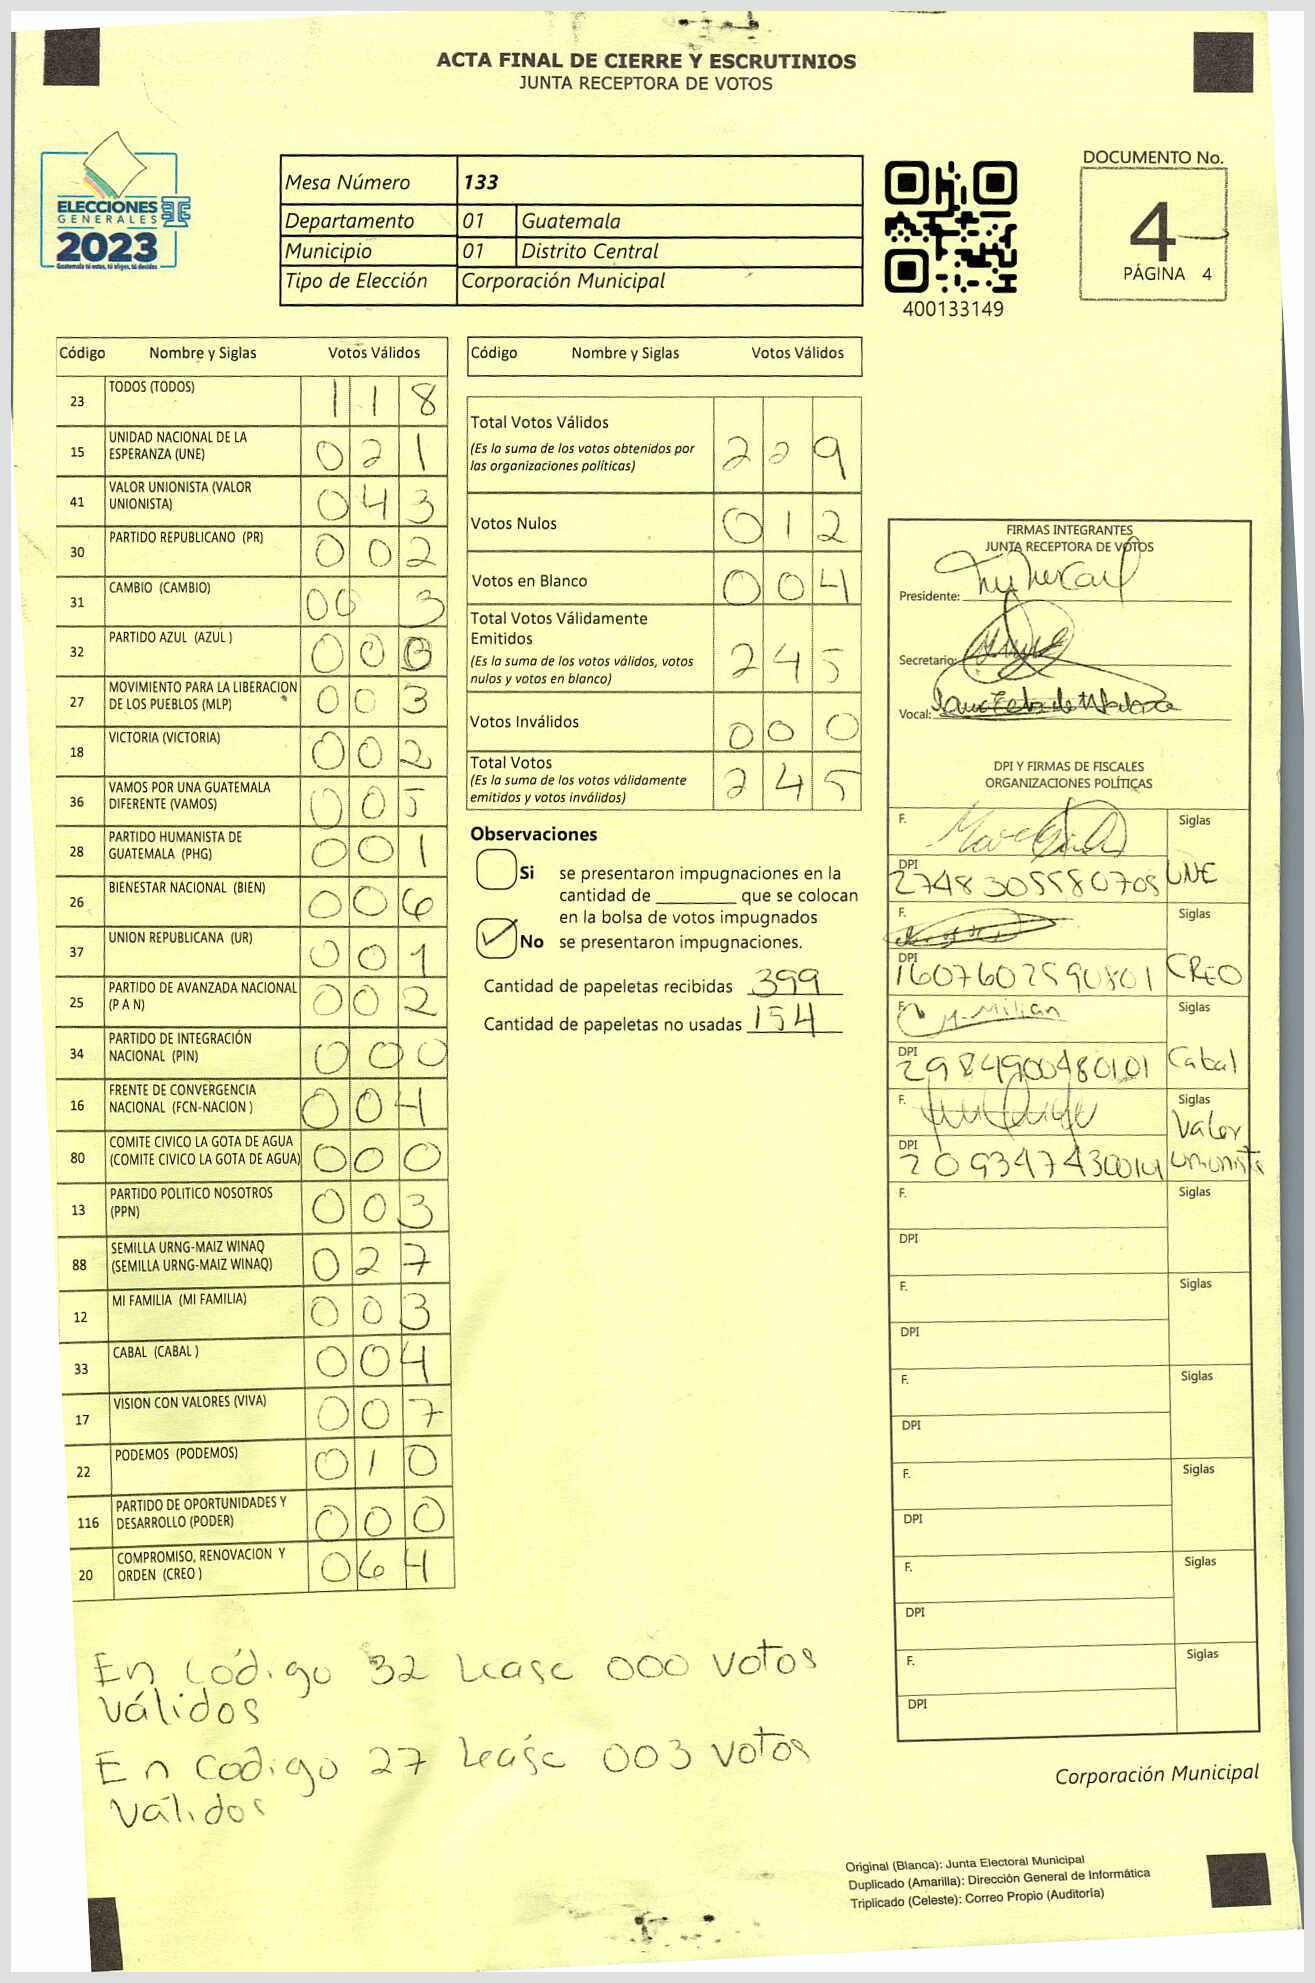 ACTA FINAL DE CIERRE Y ESCRUTINIOS
JUNTA RECEPTORA DE VOTOS
ELECCIONES
GENERALES
2023
Guatemala tú estas, tú eliges, tú decides
Mesa Número 133
Departamento 01 Guatemala
Municipio 01 Distrito Central
Tipo de Elección Corporación Municipal
400133149
DOCUMENTO No.
4
PÁGINA 4
Código Nombre y Siglas Votos Válidos
23 TODOS (TODOS) 118
15 UNIDAD NACIONAL DE LA
ESPERANZA (UNE) 021
41 VALOR UNIONISTA (VALOR
UNIONISTA) 043
30 PARTIDO REPUBLICANO (PR) 002
31 CAMBIO (CAMBIO) 00 3
32 PARTIDO AZUL (AZUL ) 000
27 MOVIMIENTO PARA LA LIBERACION
DE LOS PUEBLOS (MLP) 003
18 VICTORIA (VICTORIA) 002
36 VAMOS POR UNA GUATEMALA
DIFERENTE (VAMOS) 005
28 PARTIDO HUMANISTA DE
GUATEMALA (PHG) 001
26 BIENESTAR NACIONAL (BIEN) 006
37 UNION REPUBLICANA (UR) 001
25 PARTIDO DE AVANZADA NACIONAL
(P A N) 002
34 PARTIDO DE INTEGRACIÓN
NACIONAL (PIN) 000
16 FRENTE DE CONVERGENCIA
NACIONAL (FCN-NACION ) 004
80 COMITE CIVICO LA GOTA DE AGUA
(COMITE CIVICO LA GOTA DE AGUA) 000
13 PARTIDO POLITICO NOSOTROS
(PPN) 003
88 SEMILLA URNG-MAIZ WINAQ
(SEMILLA URNG-MAIZ WINAQ) 027
12 MI FAMILIA (MI FAMILIA) 003
33 CABAL (CABAL ) 004
17 VISION CON VALORES (VIVA) 007
22 PODEMOS (PODEMOS) 010
116 PARTIDO DE OPORTUNIDADES Y
DESARROLLO (PODER) 000
20 COMPROMISO, RENOVACION Y
ORDEN (CREO ) 064
En código 32 Lease 000 votos
Válidos
En Codigo 27 Leáse 003 votos
Válidos
Código Nombre y Siglas Votos Válidos
Total Votos Válidos
(Es la suma de los votos obtenidos por
las organizaciones políticas) 229
Votos Nulos 012
Votos en Blanco 004
Total Votos Válidamente
Emitidos
(Es la suma de los votos válidos, votos
nulos y votos en blanco) 245
Votos Inválidos 000
Total Votos
(Es la suma de los votos válidamente
emitidos y votos inválidos) 245
Observaciones
Si se presentaron impugnaciones en la
cantidad de ________ que se colocan
en la bolsa de votos impugnados
No se presentaron impugnaciones.
Cantidad de papeletas recibidas 399
Cantidad de papeletas no usadas 154
FIRMAS INTEGRANTES
JUNTA RECEPTORA DE VOTOS
Presidente:
Secretario:
Vocal:
DPI Y FIRMAS DE FISCALES
ORGANIZACIONES POLÍTICAS
F. Siglas
DPI 2748305580705 UNE
F. Siglas
DPI 1607602590801 CREO
F. M. Milian Siglas
DPI 2984900480101 Cabal
F. Siglas
Valor
DPI 2093474300101 Unionista
F. Siglas
DPI
F. Siglas
DPI
F. Siglas
DPI
F. Siglas
DPI
F. Siglas
DPI
F. Siglas
DPI
Corporación Municipal
Original (Blanca): Junta Electoral Municipal
Duplicado (Amarilla): Dirección General de Informática
Triplicado (Celeste): Correo Propio (Auditoría)